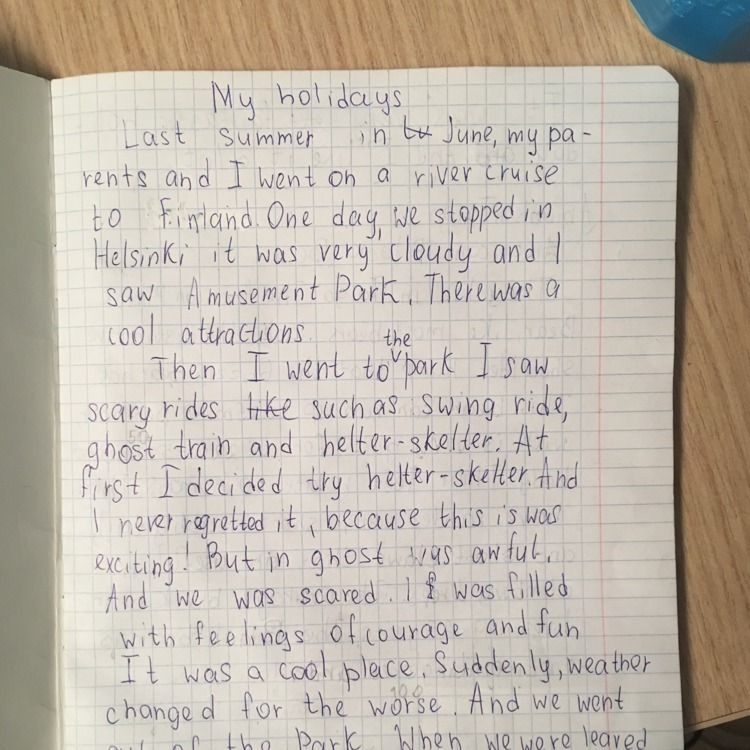 My holidays
Last summer in June, my pa-
rents and I went on a river cruise
to Finland. One day, we stopped in
Helsinki it was very cloudy and I
saw Amusement Park. There was a
cool attractions.
the
Then I went to park I saw
scary rides like such as swing ride,
ghost train and helter-skelter. At
first I decided try helter-skelter. And
I never regretted it, because this is was
exciting! But in ghost was awful.
And we was scared. I was filled
with feelings of courage and fun
It was a cool place. Suddenly, weather
changed for the worse. And we went
out of the Park. When we were leaved